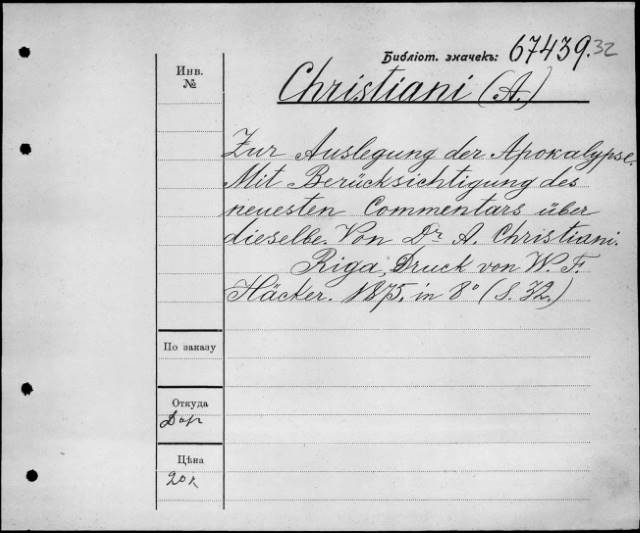 Библіот. значекъ: 67439.32
Инв.
№
Christiani (A.)
Zur Auslegung der Apokalypse.
Mit Berücksichtigung des
neuesten Commentars über
dieselbe. Von Dr A. Christiani.
Riga, Druck von W. F.
Häcker. 1875. in 8° (S. 32.)
По заказу
Откуда
Дар
Цѣна
20 к